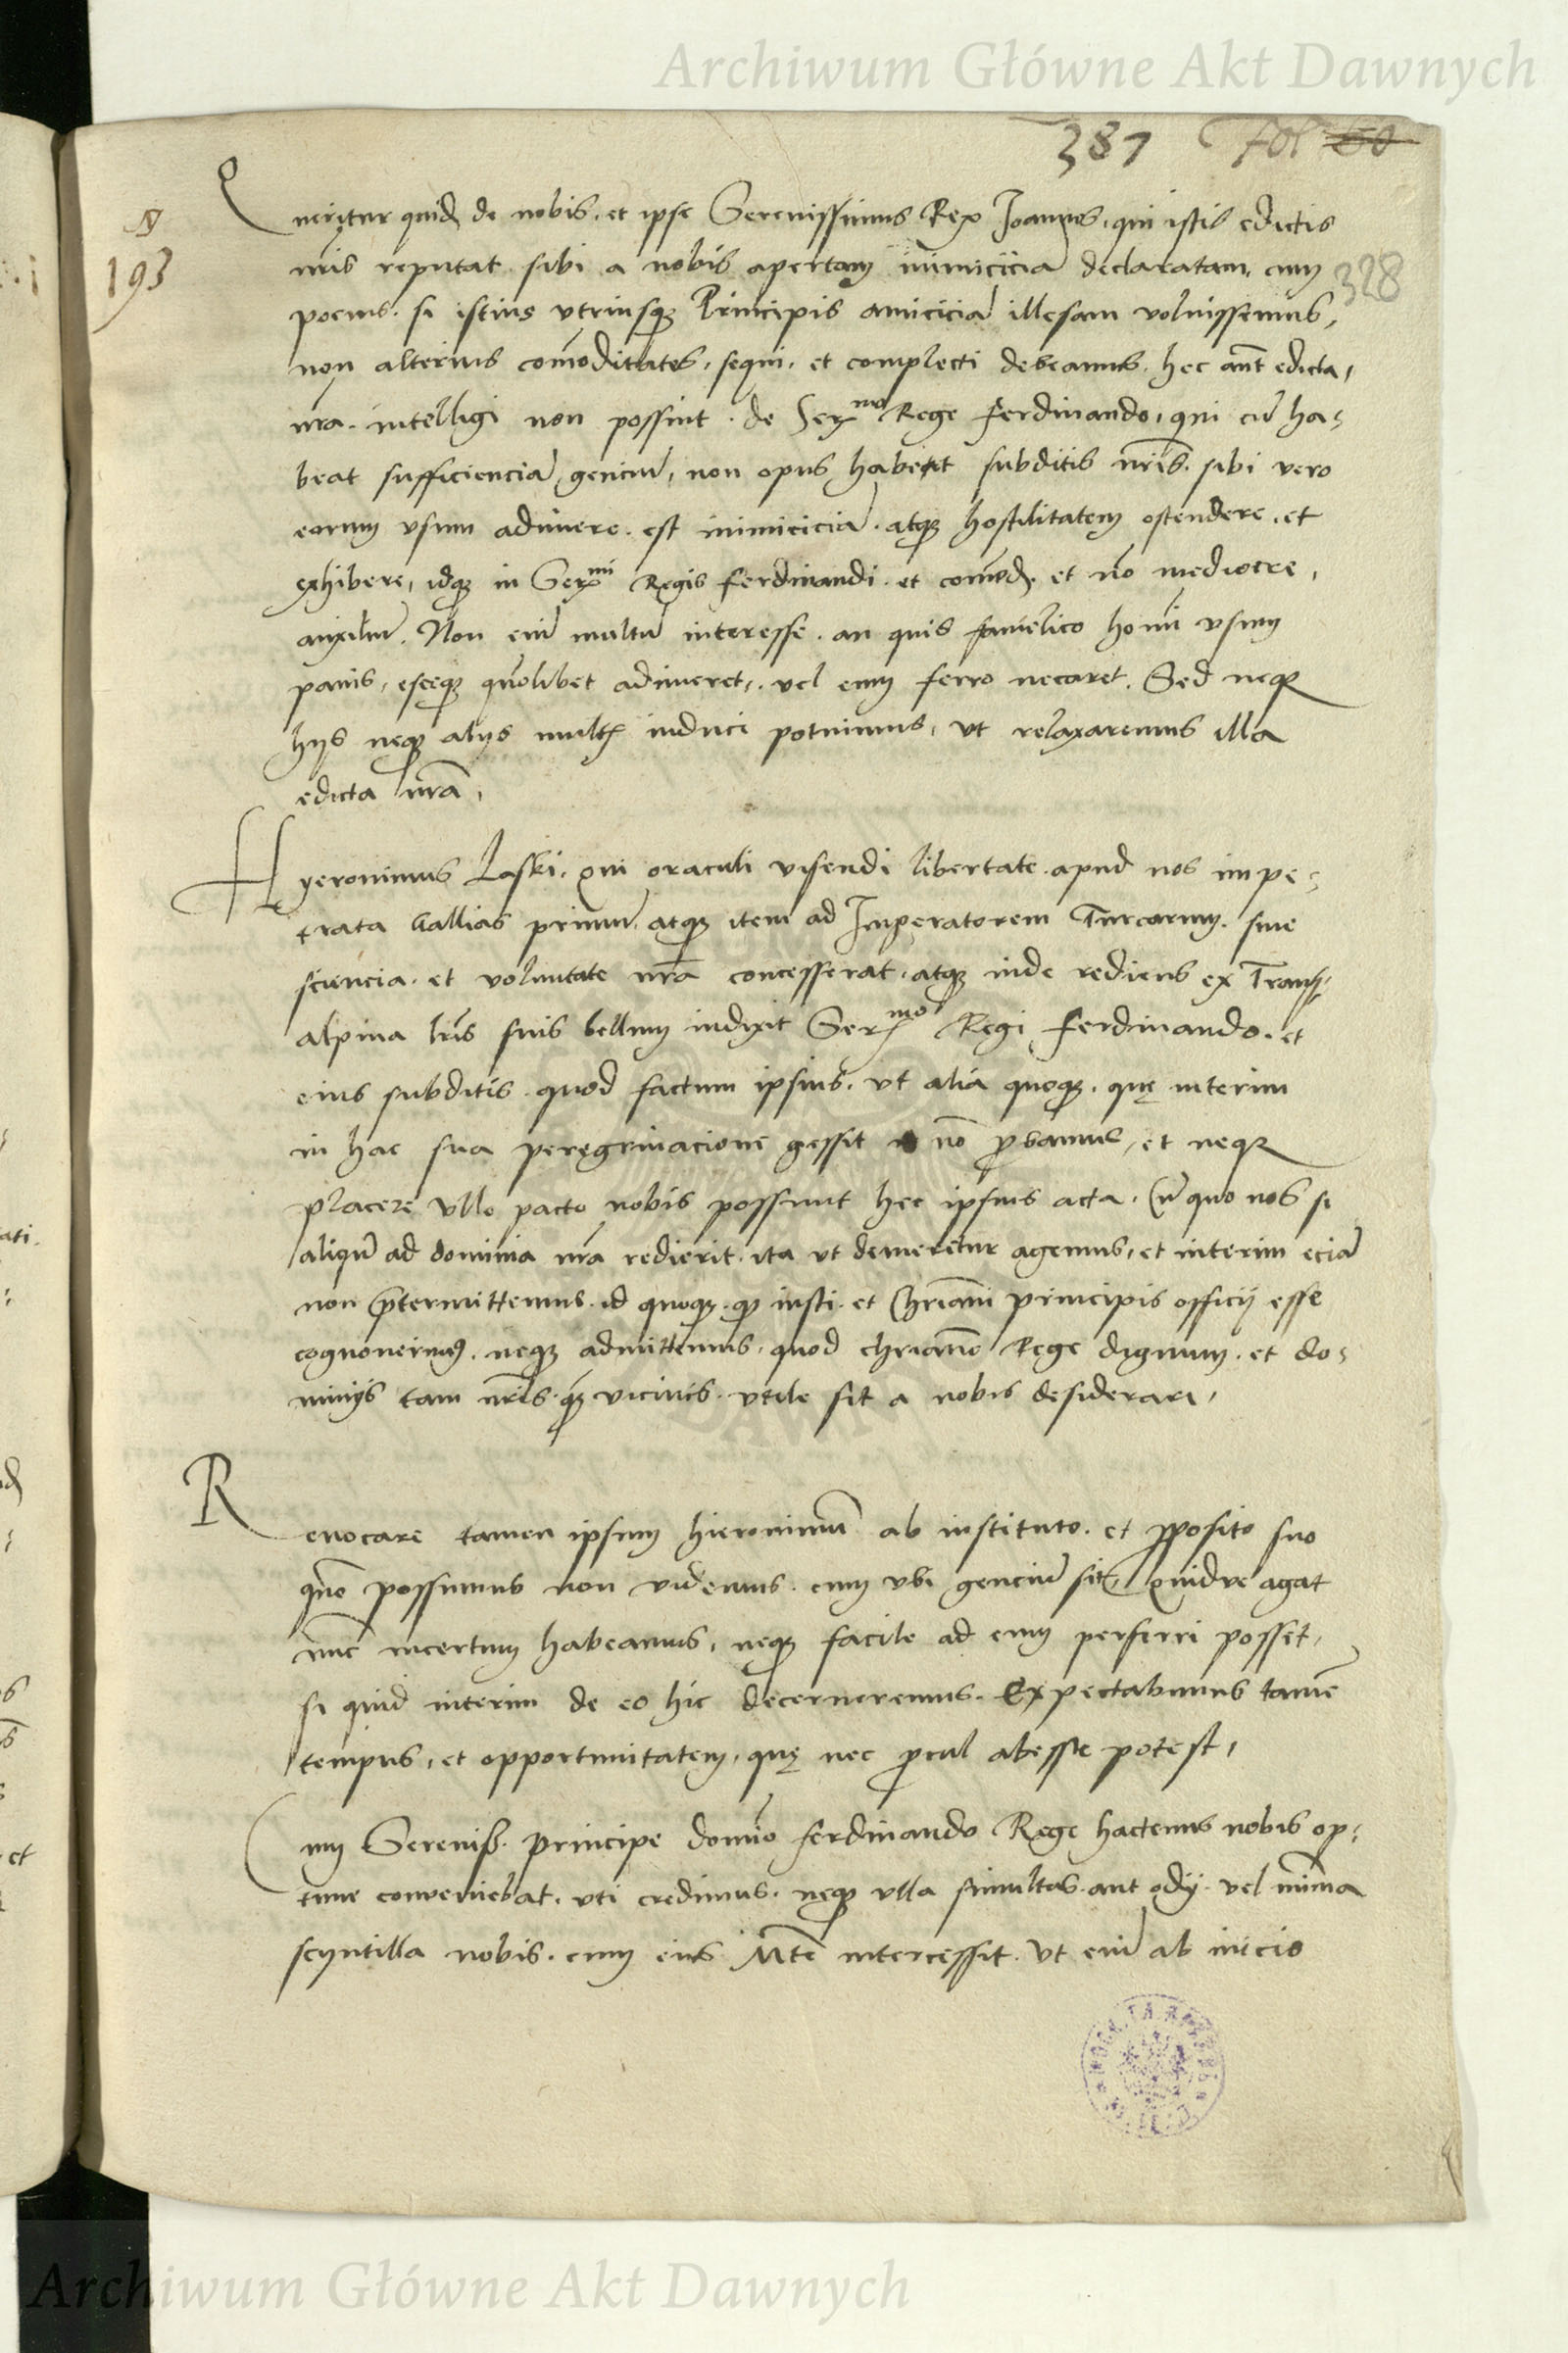 Archiwum Główne Akt Dawnych
387 fol 60
N
193
328
Queritur quidē de nobis. et ipse Serenissimus Rex Joannes, qui istis edictis
nr̄is reputat sibi a nobis apertam inimiciciā declaratam, cum
pocius. si istius vtriusq; Principis amiciciā illesam voluissemus,
non alterius com̄oditates, sequi, et complecti debeamus. hec aūt edicta,
nr̄a. intelligi non possint. de Sermo Rege Ferdinando, qui cū ha-
beat sufficienciā genciū, non opus habet subditis nr̄is. sibi vero
eorum vsum adimere. est inimiciciā. atq; hostilitatem ostendere. et
exhibere, idq; in Sermi Regis Ferdinandi. et com̄od. et nō mediocre,
auxiliū. Non enī multū interesse. an quis famelico homī vsum
panis, esceq; quōlibet adimeret, vel eum ferro necaret. Sed neq;
hijs neq; alijs mult, induci potuimus, vt relaxaremus illa
edicta nr̄a,
Hyeronimus Laski. qui oraculi visendi libertate apud nos impe-
trata Gallias primū, atq; item ad Imperatorem Turcarum. sine
sciencia. et voluntate nr̄a concesserat, atq; inde rediens ex Trans-
alpina lr̄is suis bellum indixit Sermo Regi Ferdinando. et
eius subditis. quod factum ipsius, vt alia quoq;. quę interim
in hac sua peregrinacione gessit nō ꝓbamus, et neq;
placere vllo pacto nobis possunt hec ipsius acta. Cū quo nos si
aliqn̄ ad dominia nr̄a redierit. ita vt demeretur agemus, et interim eciā
non p̄termittemus. id quoq;. qđ iusti. et Chr̄iani principis officij esse
cognouerimus. neq; admittemus, quod chr̄iano Rege dignum. et do-
minijs tam nr̄is. q̄; vicinis. vtile sit a nobis desiderari,
Reuocare tamen ipsum hieronimū ab instituto. et ꝓposito suo
quō possumus non videmus. cum vbi genciū sit, quidve agat
nūc incertum habeamus, neq; facile ad eum perferri posset,
si quid interim de eo hic decerneremus. Expectabimus tamē
tempus, et opportunitatem, quę nec ꝓcul abesse potest,
Cum Sereniss. Principe domīo Ferdinando Rege hactenus nobis op-
time conveniebat, vti credimus. neq; vlla simultas. aut odij. vel mīima
scyntilla nobis. cum eius Mtē intercessit. Vt enī ab inicio
Archiwum Główne Akt Dawnych